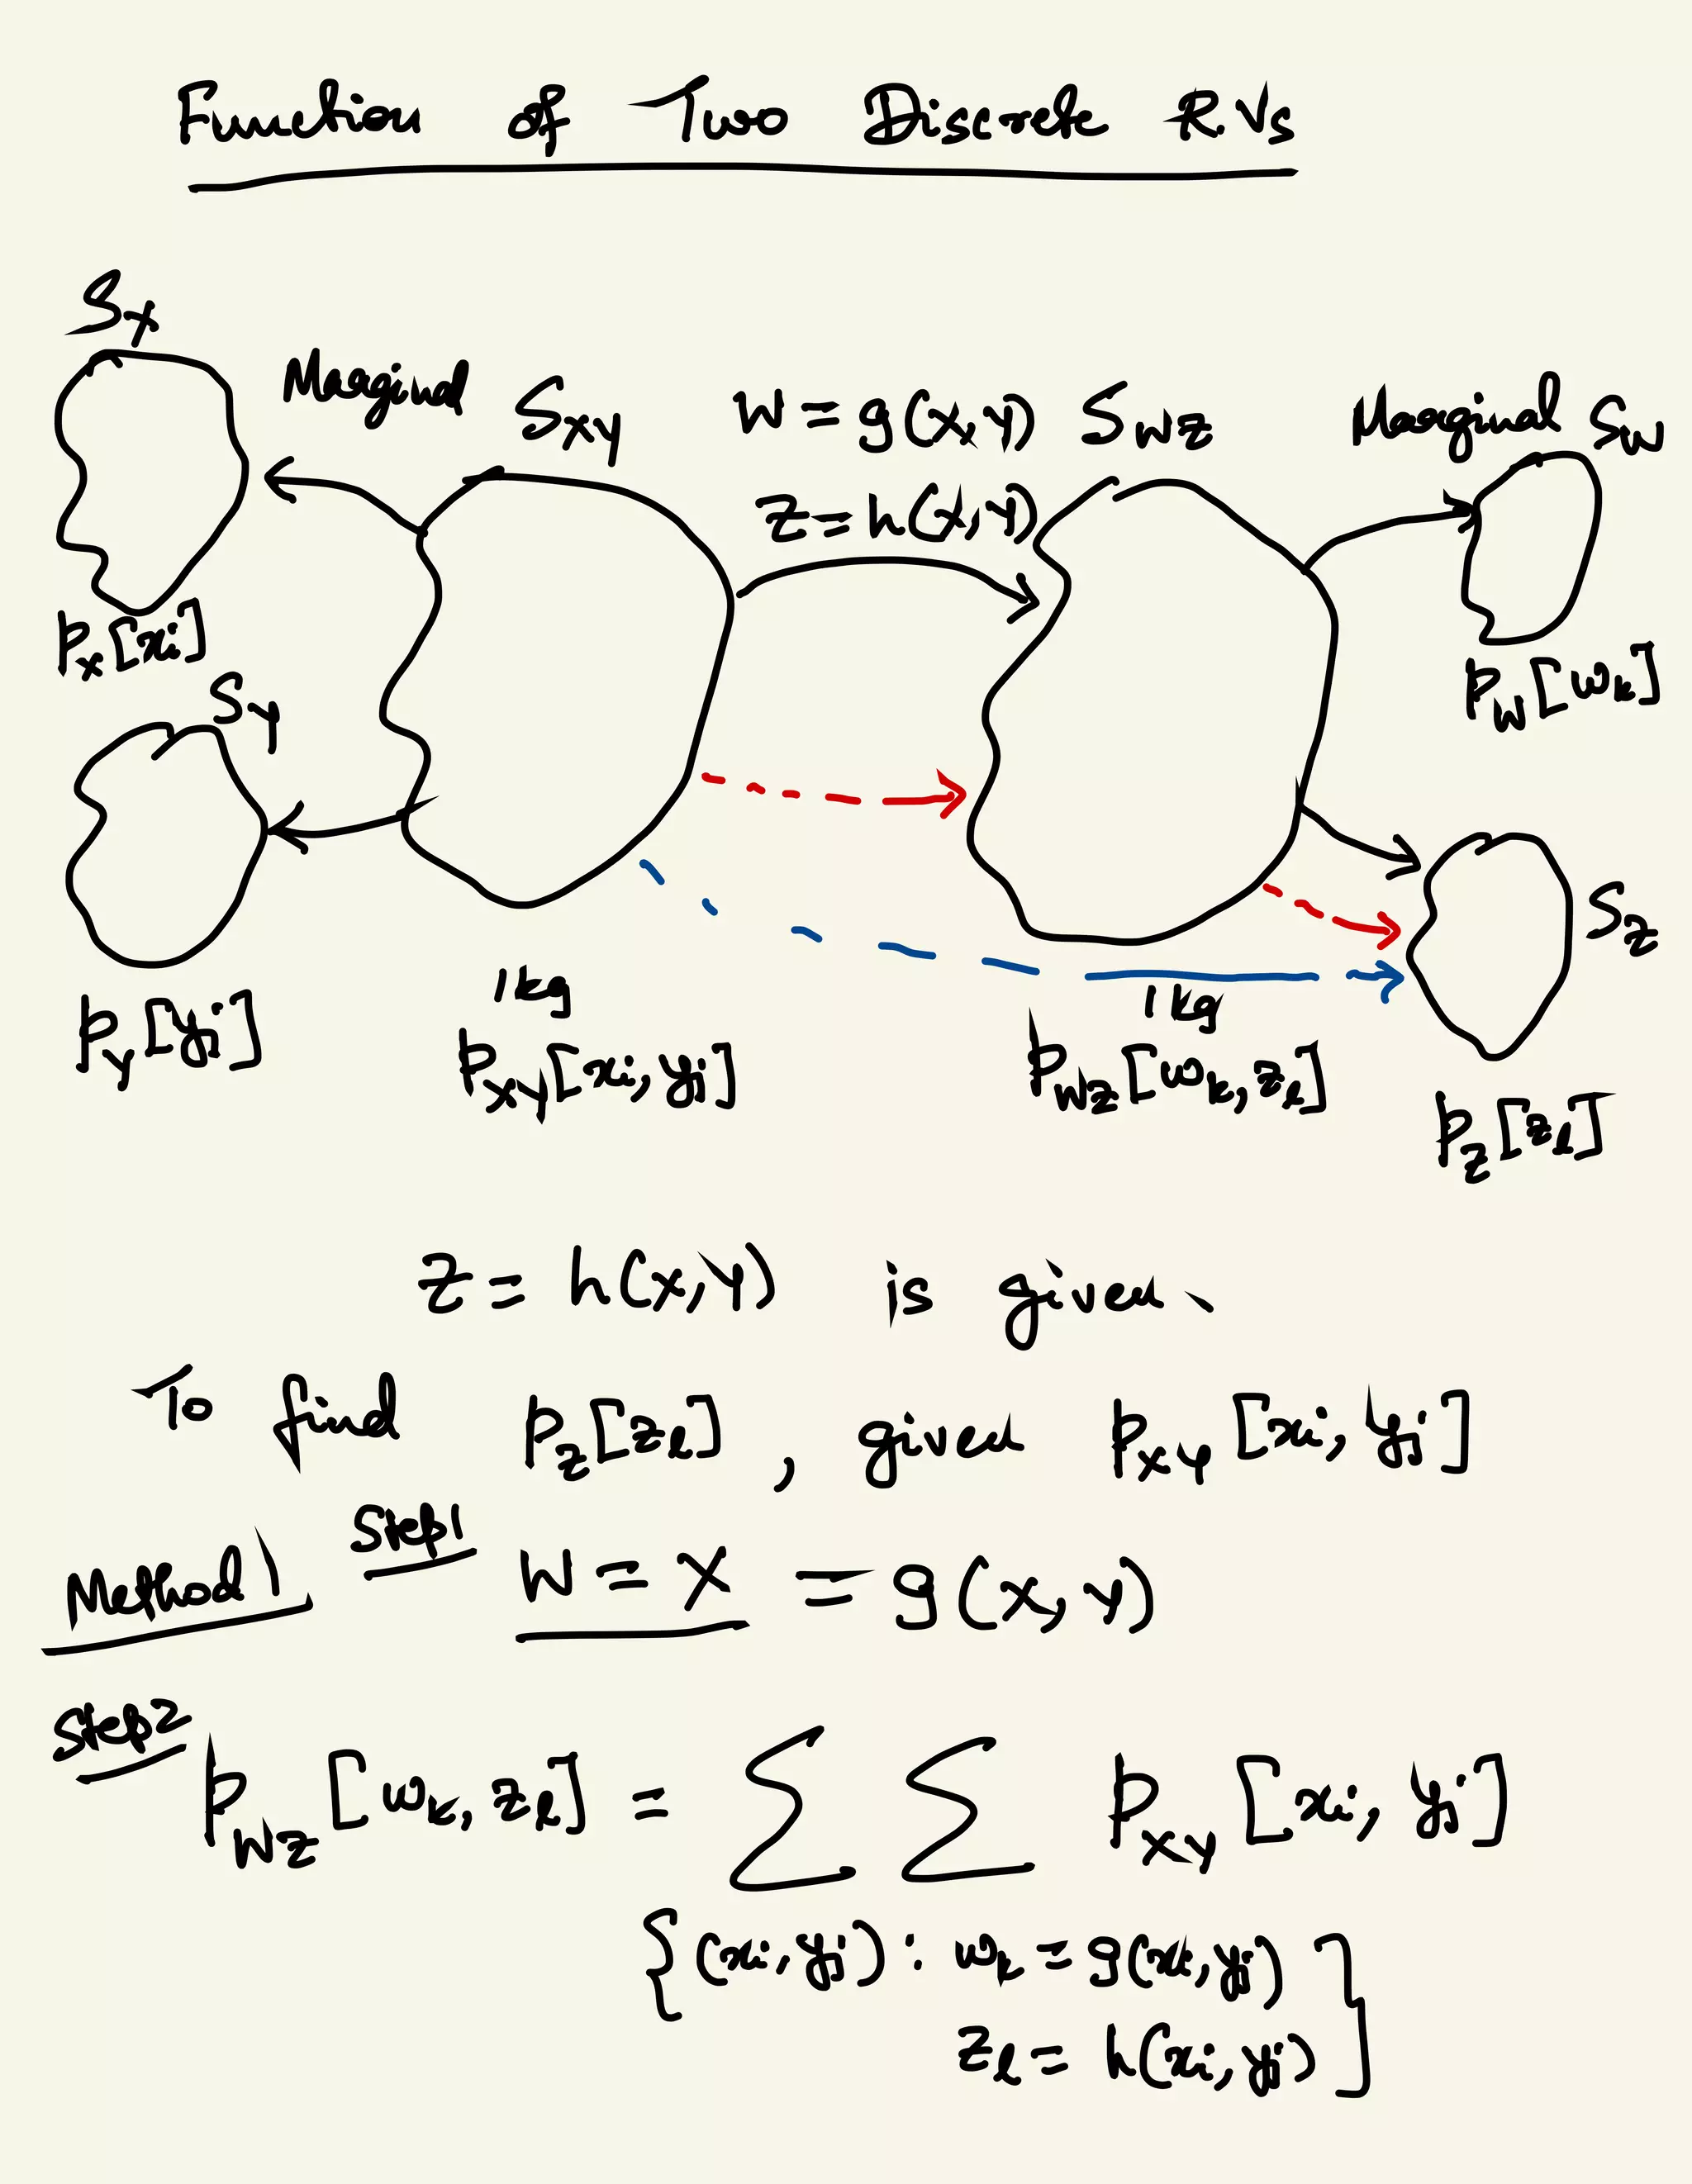 Function of Two Discrete R.Vs
S_X
Marginal S_XY W = g(X,Y) S_WZ Marginal S_W
Z = h(X,Y)
p_X[xi]
p_W[w_k]
S_Y
S_Z
1kg 1kg
p_Y[yj] p_XY[xi, yj] p_WZ[w_k, z_l]
p_Z[z_l]
Z = h(X,Y) is given.
To find p_Z[z_l], given p_XY[xi, yj]
Method 1 Step1 W = X = g(X,Y)
Step2
p_WZ[w_k, z_l] = ∑ ∑ p_XY[xi, yj]
{(xi, yj) : w_k = g(xi, yj)
z_l = h(xi, yj)}